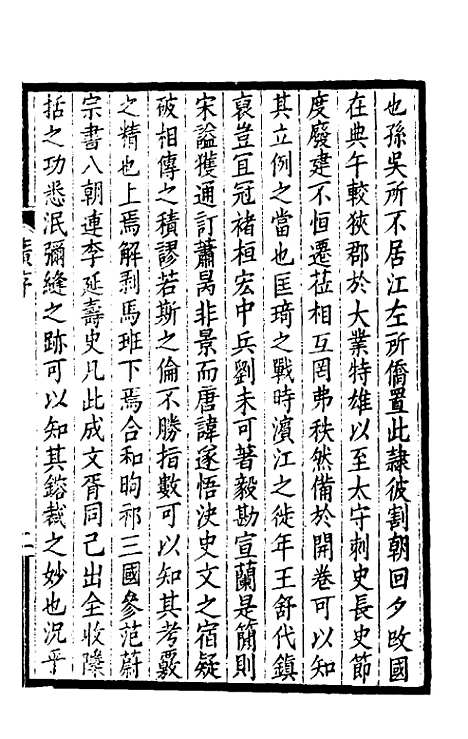 也孫吳所不居江左所僑置此隸彼割朝回夕改國
在典午較狹郡於大業特雄以至太守刺史長史節
度廢建不恒遷莅相互罔弗秩然備於開卷可以知
其立例之當也匡琦之戰時濱江之徙年王舒代鎮
裒豈宜冠褚桓宏中兵劉未可著毅勘宣蘭是簡則
宋謚獲通訂蕭昺非景而唐諱遂悟決史文之宿疑
破相傳之積謬若斯之倫不勝指數可以知其考覈
之精也上焉解剥馬班下焉合和昫祁三國參范蔚
宗書八朝連李延壽史凡此成文胥同己出全收隱
括之功悉泯彌縫之跡可以知其鎔裁之妙也況乎
序
二